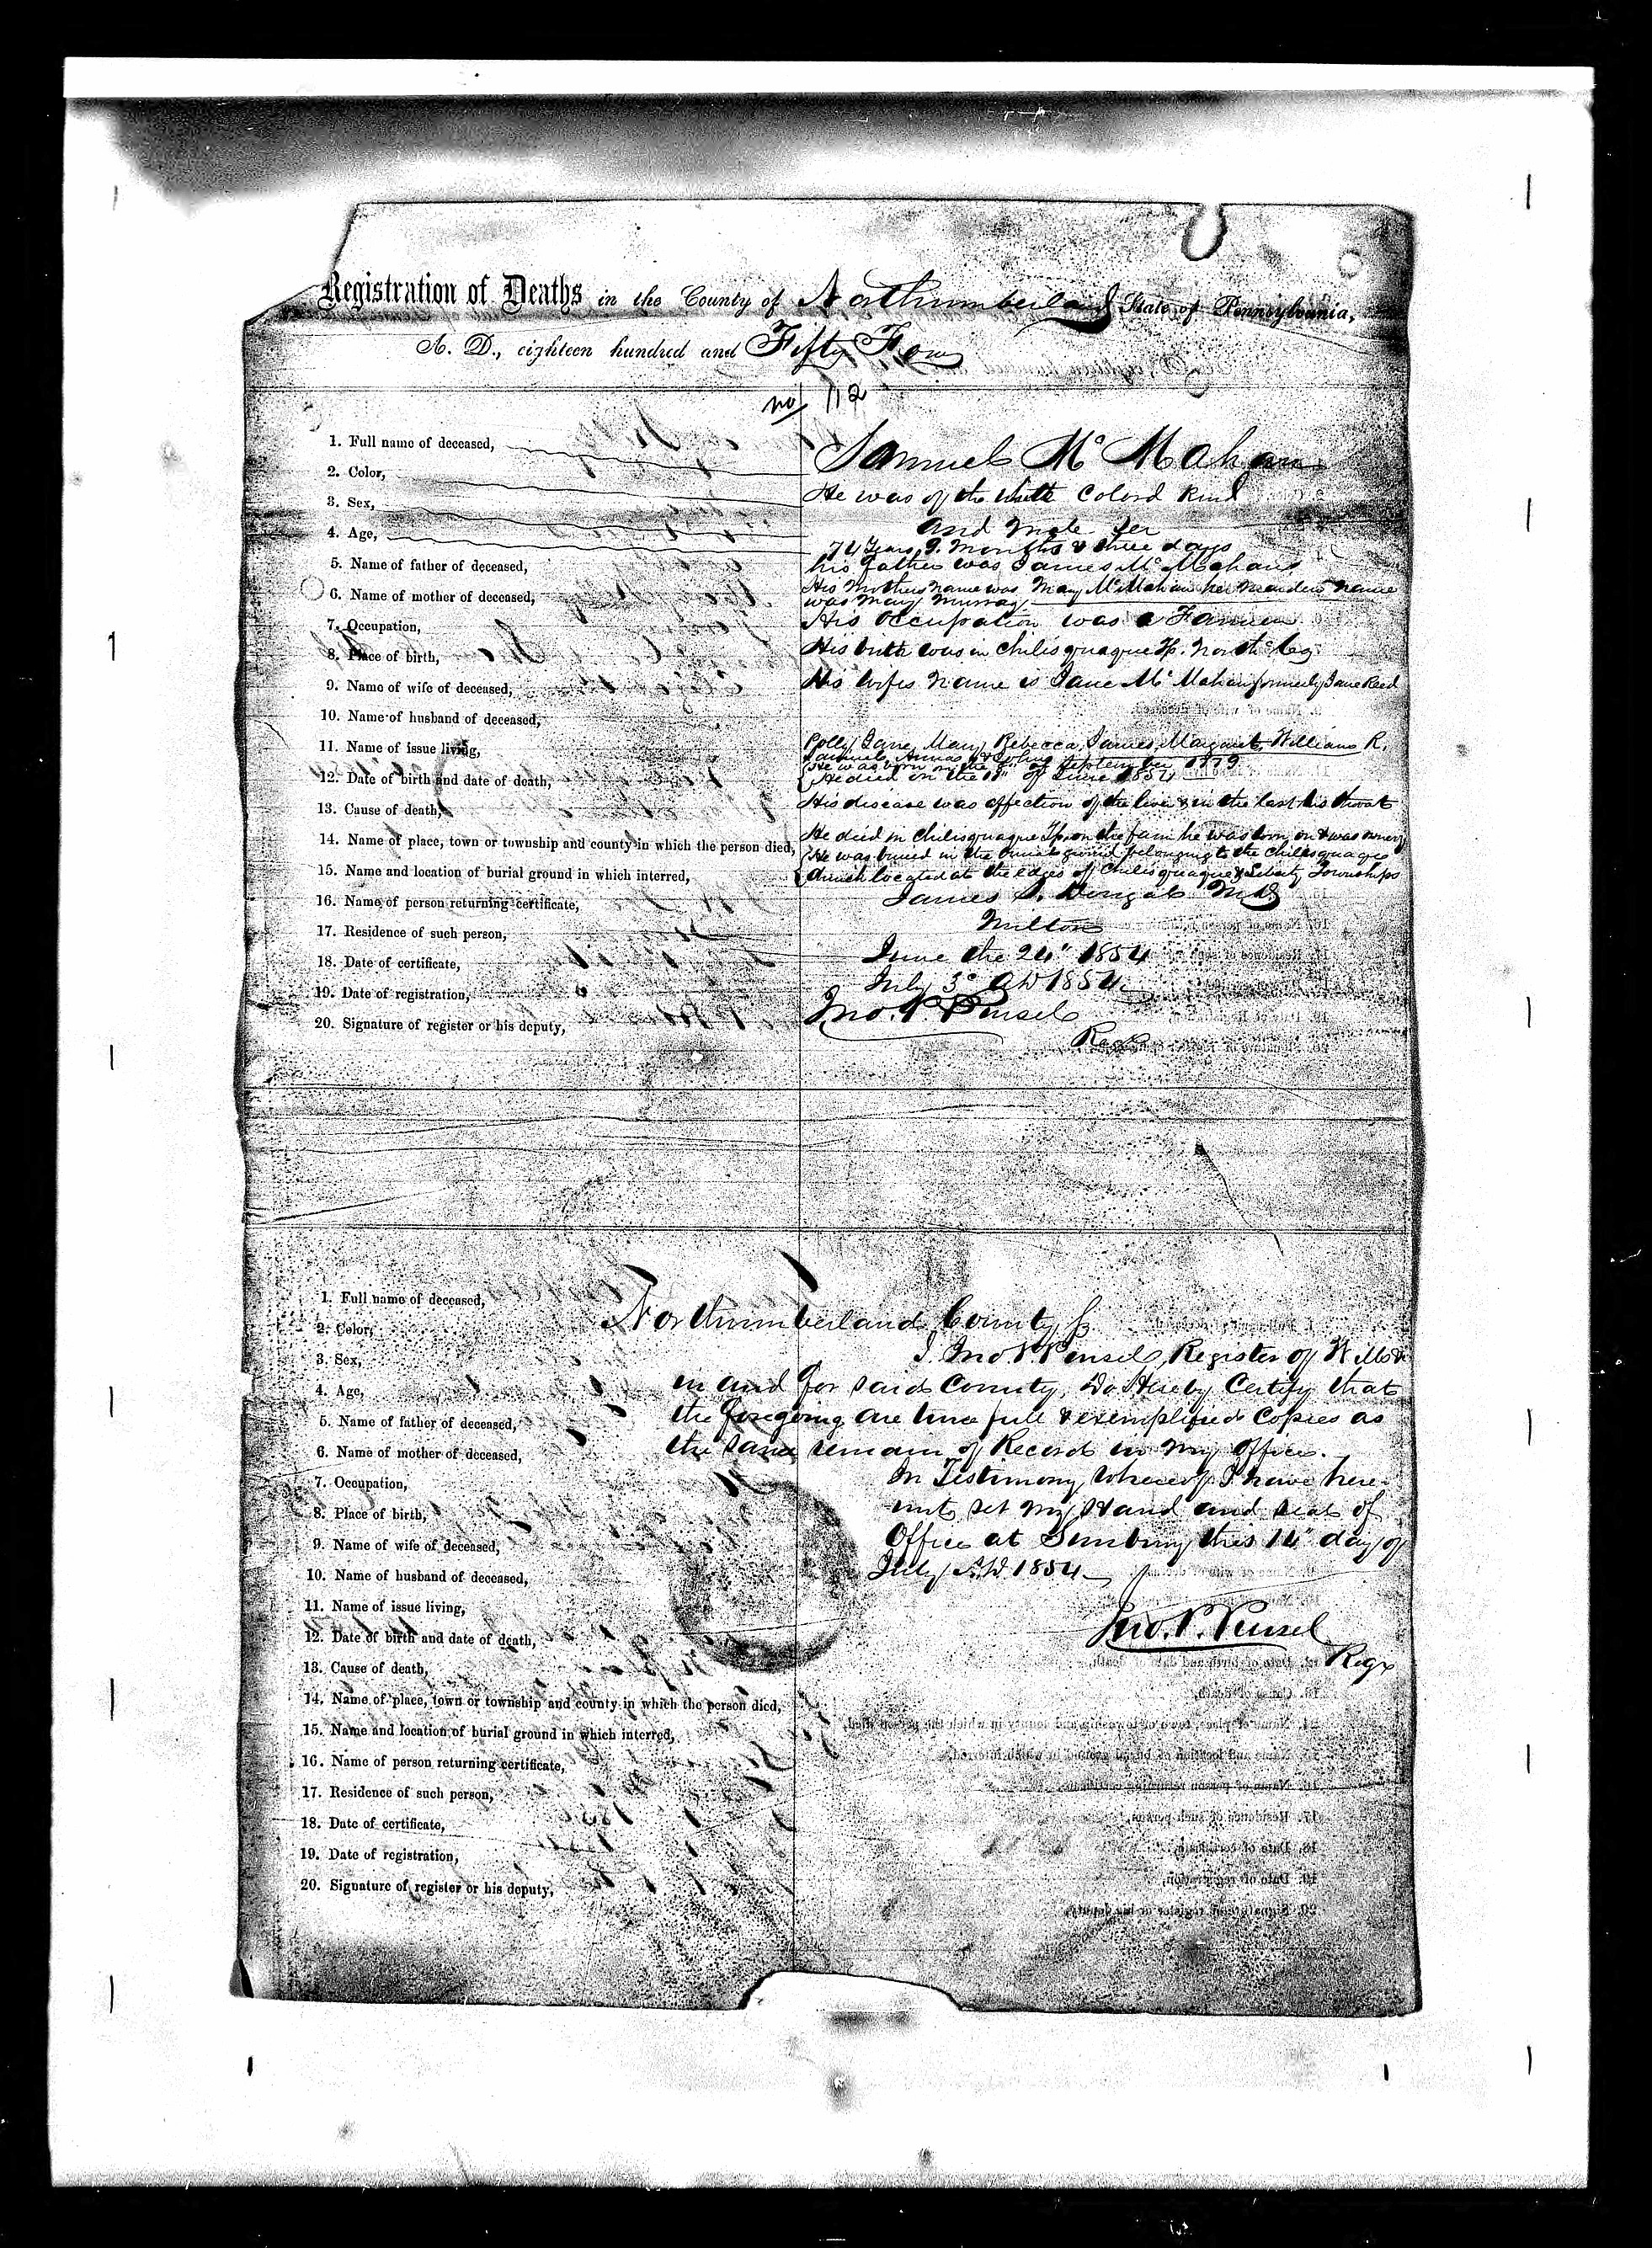 Registration of Deaths in the County of Northumberland State of Pennsylvania,
A. D., eighteen hundred and Fifty Four
No 112
1. Full name of deceased, Samuel Mc Mahan
2. Color, He was of the white Colord kind
3. Sex, and Male Sex
4. Age, 74 Years, 9 Months & three days
5. Name of father of deceased, his father was James Mc Mahan
6. Name of mother of deceased, His Mothers name was Mary McMahan her maiden name
was Mary Murray
7. Occupation, His occupation was a Farmer
8. Place of birth, His birth was in Chilisquaque Tp. North Co
9. Name of wife of deceased, His wifes name is Jane Mc Mahan formerly Jane Reed
10. Name of husband of deceased,
11. Name of issue living, Polly, Jane, Mary, Rebecca, James, Margaret, William R.
Samuel, Anna & John
12. Date of birth and date of death, He was born on the 8" of September 1779
He died on the 11" of June 1854
13. Cause of death, His disease was affection of the liver & in the last his throat
14. Name of place, town or township and county in which the person died, He died in Chilisquaque Tp. on the farm he was born on & was owner of
15. Name and location of burial ground in which interred, He was buried in the burial ground belonging to the Chilisquaque
church located at the edges of Chilisquaque & Liberty Townships
16. Name of person returning certificate, James S. Dougal M.D.
17. Residence of such person, Milton
18. Date of certificate, June the 24" 1854
19. Date of registration, July 3d AD 1854
20. Signature of register or his deputy, Jno. P. Pursel
Regr
1. Full name of deceased,
2. Color,
Northumberland County ss
3. Sex,
I. Jno. P. Pursel, Register of Wills &
4. Age,
in and for said County, Do Hereby Certify that
5. Name of father of deceased,
the foregoing are true full & exemplified Copies as
6. Name of mother of deceased,
the same remain of Record in my Office.
7. Occupation,
In Testimony whereof I have here-
8. Place of birth,
unto set my Hand and seal of
9. Name of wife of deceased,
Office at Sunbury this 14" day of
10. Name of husband of deceased,
July A.D. 1854
11. Name of issue living,
Jno. P. Pursel
12. Date of birth and date of death,
Regr
13. Cause of death,
14. Name of place, town or township and county in which the person died,
15. Name and location of burial ground in which interred,
16. Name of person returning certificate,
17. Residence of such person,
18. Date of certificate,
19. Date of registration,
20. Signature of register or his deputy,